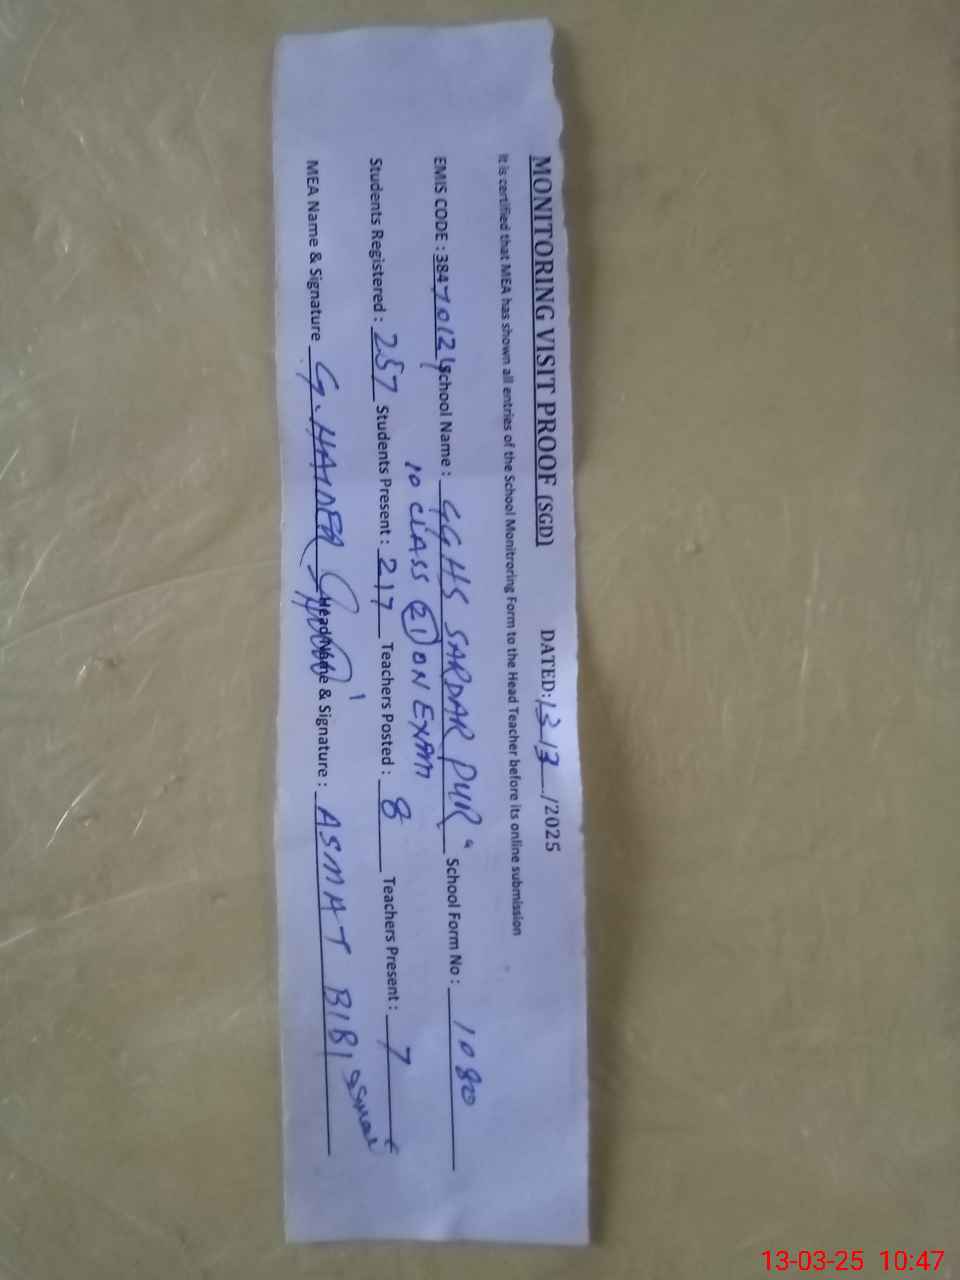 MONITORING VISIT PROOF (SGD) DATED: 13/3/2025
It is certified that MEA has shown all entries of the School Monitroring Form to the Head Teacher before its online submission
EMIS CODE : 3847012 School Name : GGHS SARDAR PUR School Form No : 1080
10 CLASS 21 ON EXAM
Students Registered : 257 Students Present : 217 Teachers Posted : 8 Teachers Present : 7
MEA Name & Signature G. HAIDER Head Name & Signature : ASMAT BIBI asmat
13-03-25 10:47